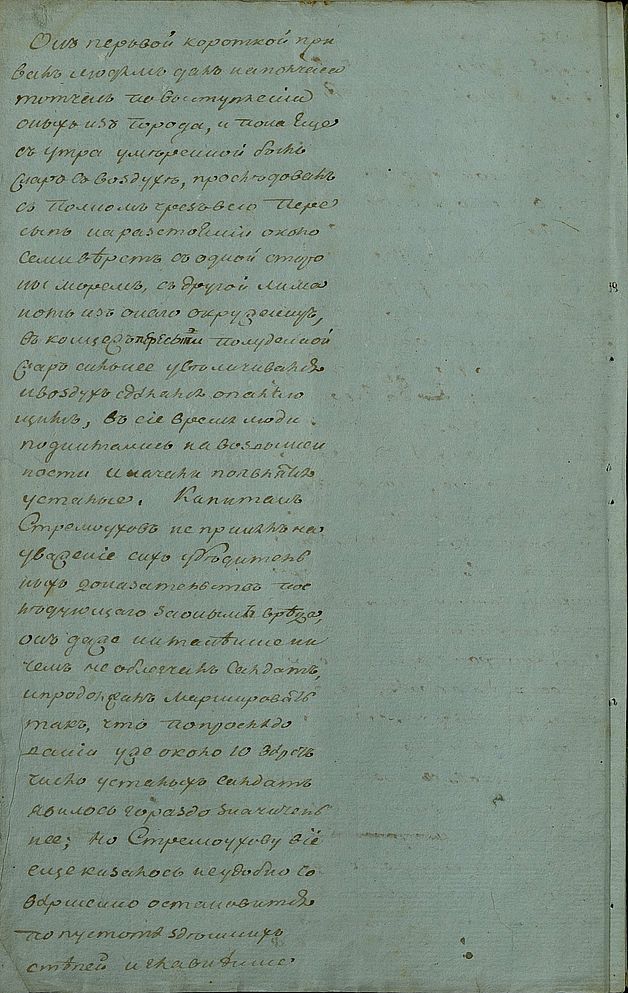 Онъ первой короткой при
валъ людямъ далъ на полчаса
тотчасъ по выступленіи
оныхъ изъ города, и пока еще
съ утра умѣренной былъ
жаръ въ воздухѣ, прослѣдовалъ
съ полкомъ чрезъ всю пере
сыпь на разстояніи около
семи вѣрстъ съ одной сторо
ны моремъ, съ другой лима
номъ изъ онаго окруженную,
въ конце пересыпи полуденной
жаръ сильнее увеличивался
и воздухъ сдѣлался опаляю
щимъ, въ сіе время люди
поднимались на возвышен
ности и начали появлятся
усталые. Капитанъ
Стремоуховъ не принялъ на
уваженіе сихъ убѣдитель
ныхъ доказательствъ пос
лѣдующаго за онымъ вреда,
онъ даже ни
чемъ не облегчалъ салдатъ,
и продолжалъ маршировать
такъ, что по прослѣдо
ваніи уже около 10 вѣрстъ
число усталыхъ салдатъ
явилось гораздо значитель
нее; но Стремоухову все
еще казалось неудобно со
вершенно остановится
по пустотѣ здешнихъ
стѣпей и